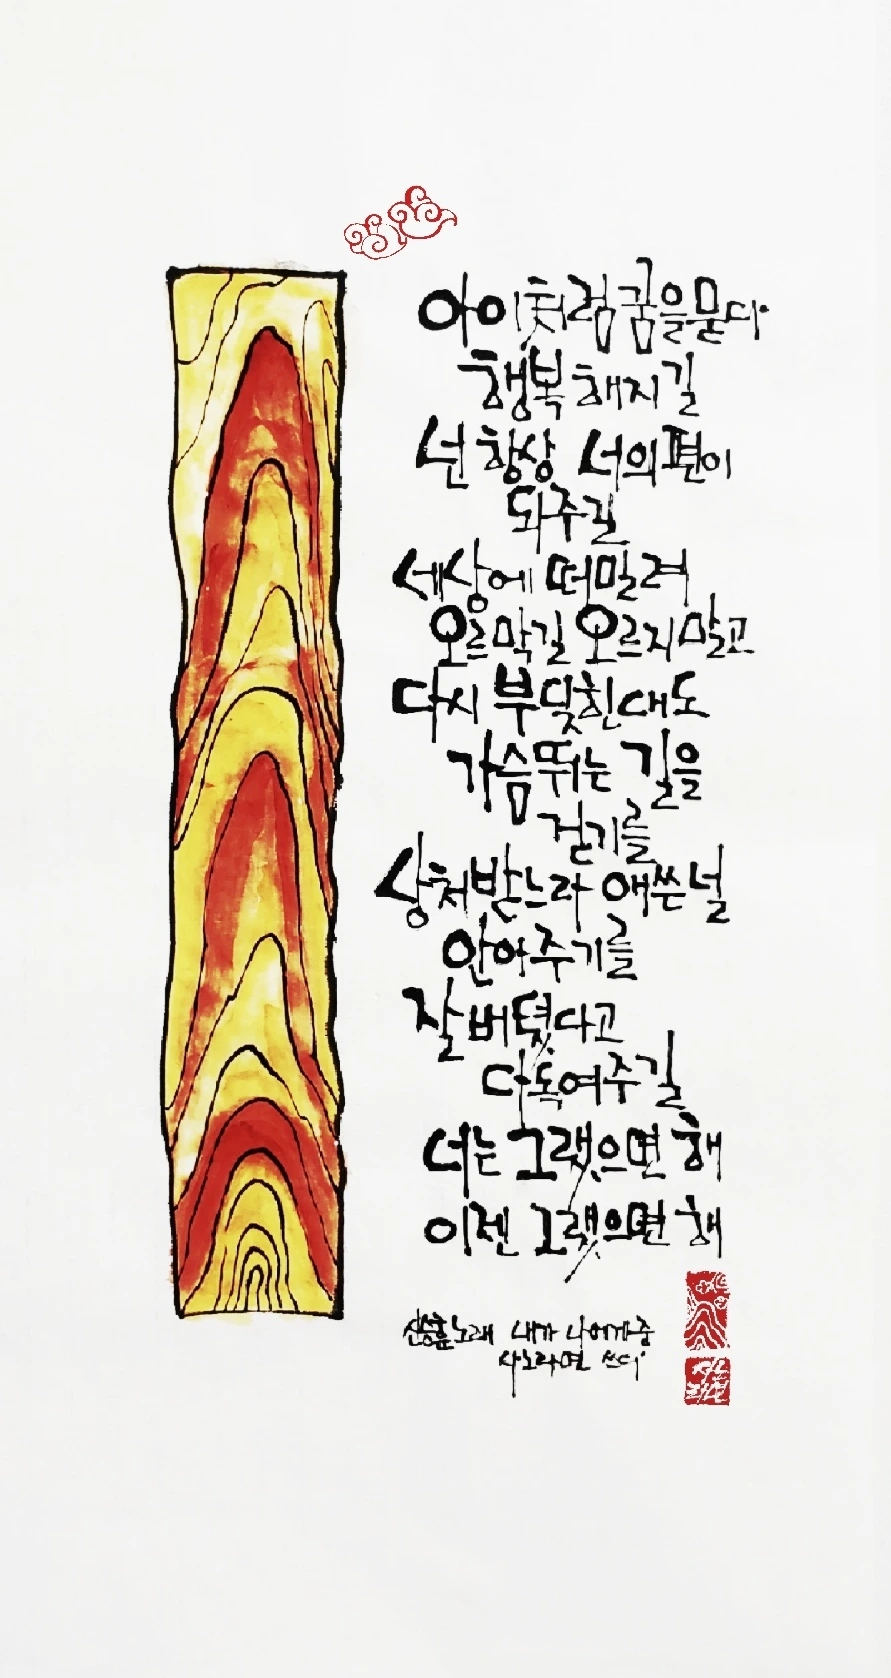 아이처럼 꿈을 묻다
행복해지길
넌 항상 너의 편이
돼주길
세상에 떠밀려
오르막길 오르지 말고
다시 부딪힌대도
가슴 뛰는 길을
걷기를
상처받느라 애쓴 널
안아주기를
잘 버텼다고
다독여주길
너는 그랬으면 해
이젠 그랬으면 해
신승훈 노래 내가 나에게 중
사노라면 쓰다